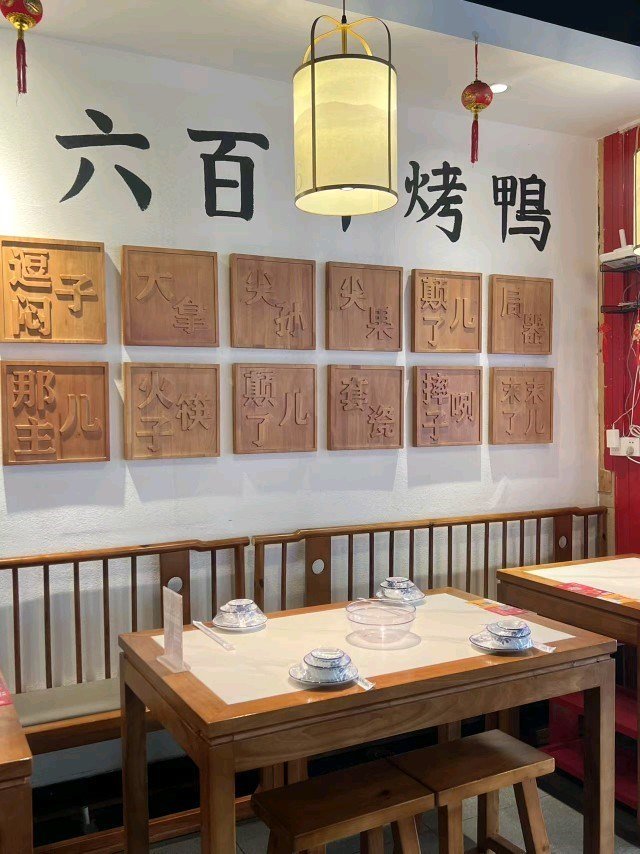 六百烤鴨
逗闷子
大拿
尖孙
尖果
颠儿了
局器
那主儿
火筷子
颠儿了
套瓷
末末了儿